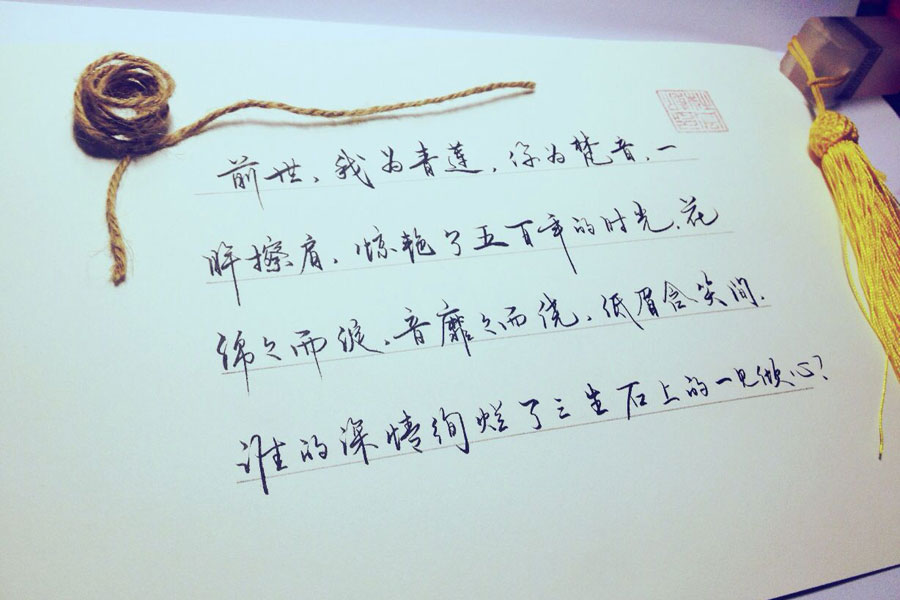 前世，我为青莲，你为梵音，一
眸擦肩，惊艳了五百年的时光。花
绵々而绽，音靡々而绕，低眉含笑间，
谁的深情绚烂了三生石上的一见倾心？